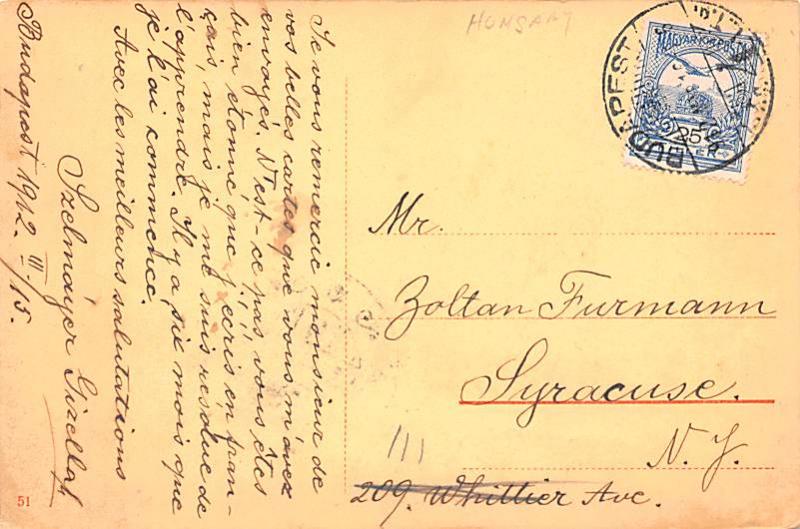 HUNGARY
MAGYAR KIR. POSTA
25
BUDAPEST
Je vous remercie monsieur de
vos belles cartes que vous m'avez
envoyés. N'est-ce pas vous êtes
bien étonné que j'écris en fran-
çais, mais je me suis resolue de
l'apprendre. Il y a six mois que
je l'ai commencé.
Avec les meilleurs salutations
Szelmáyer Gizella
Budapest 1912. III/15.
Mr.
Zoltan Furmann
Syracuse.
N. Y.
111
209. Whittier Ave.
51